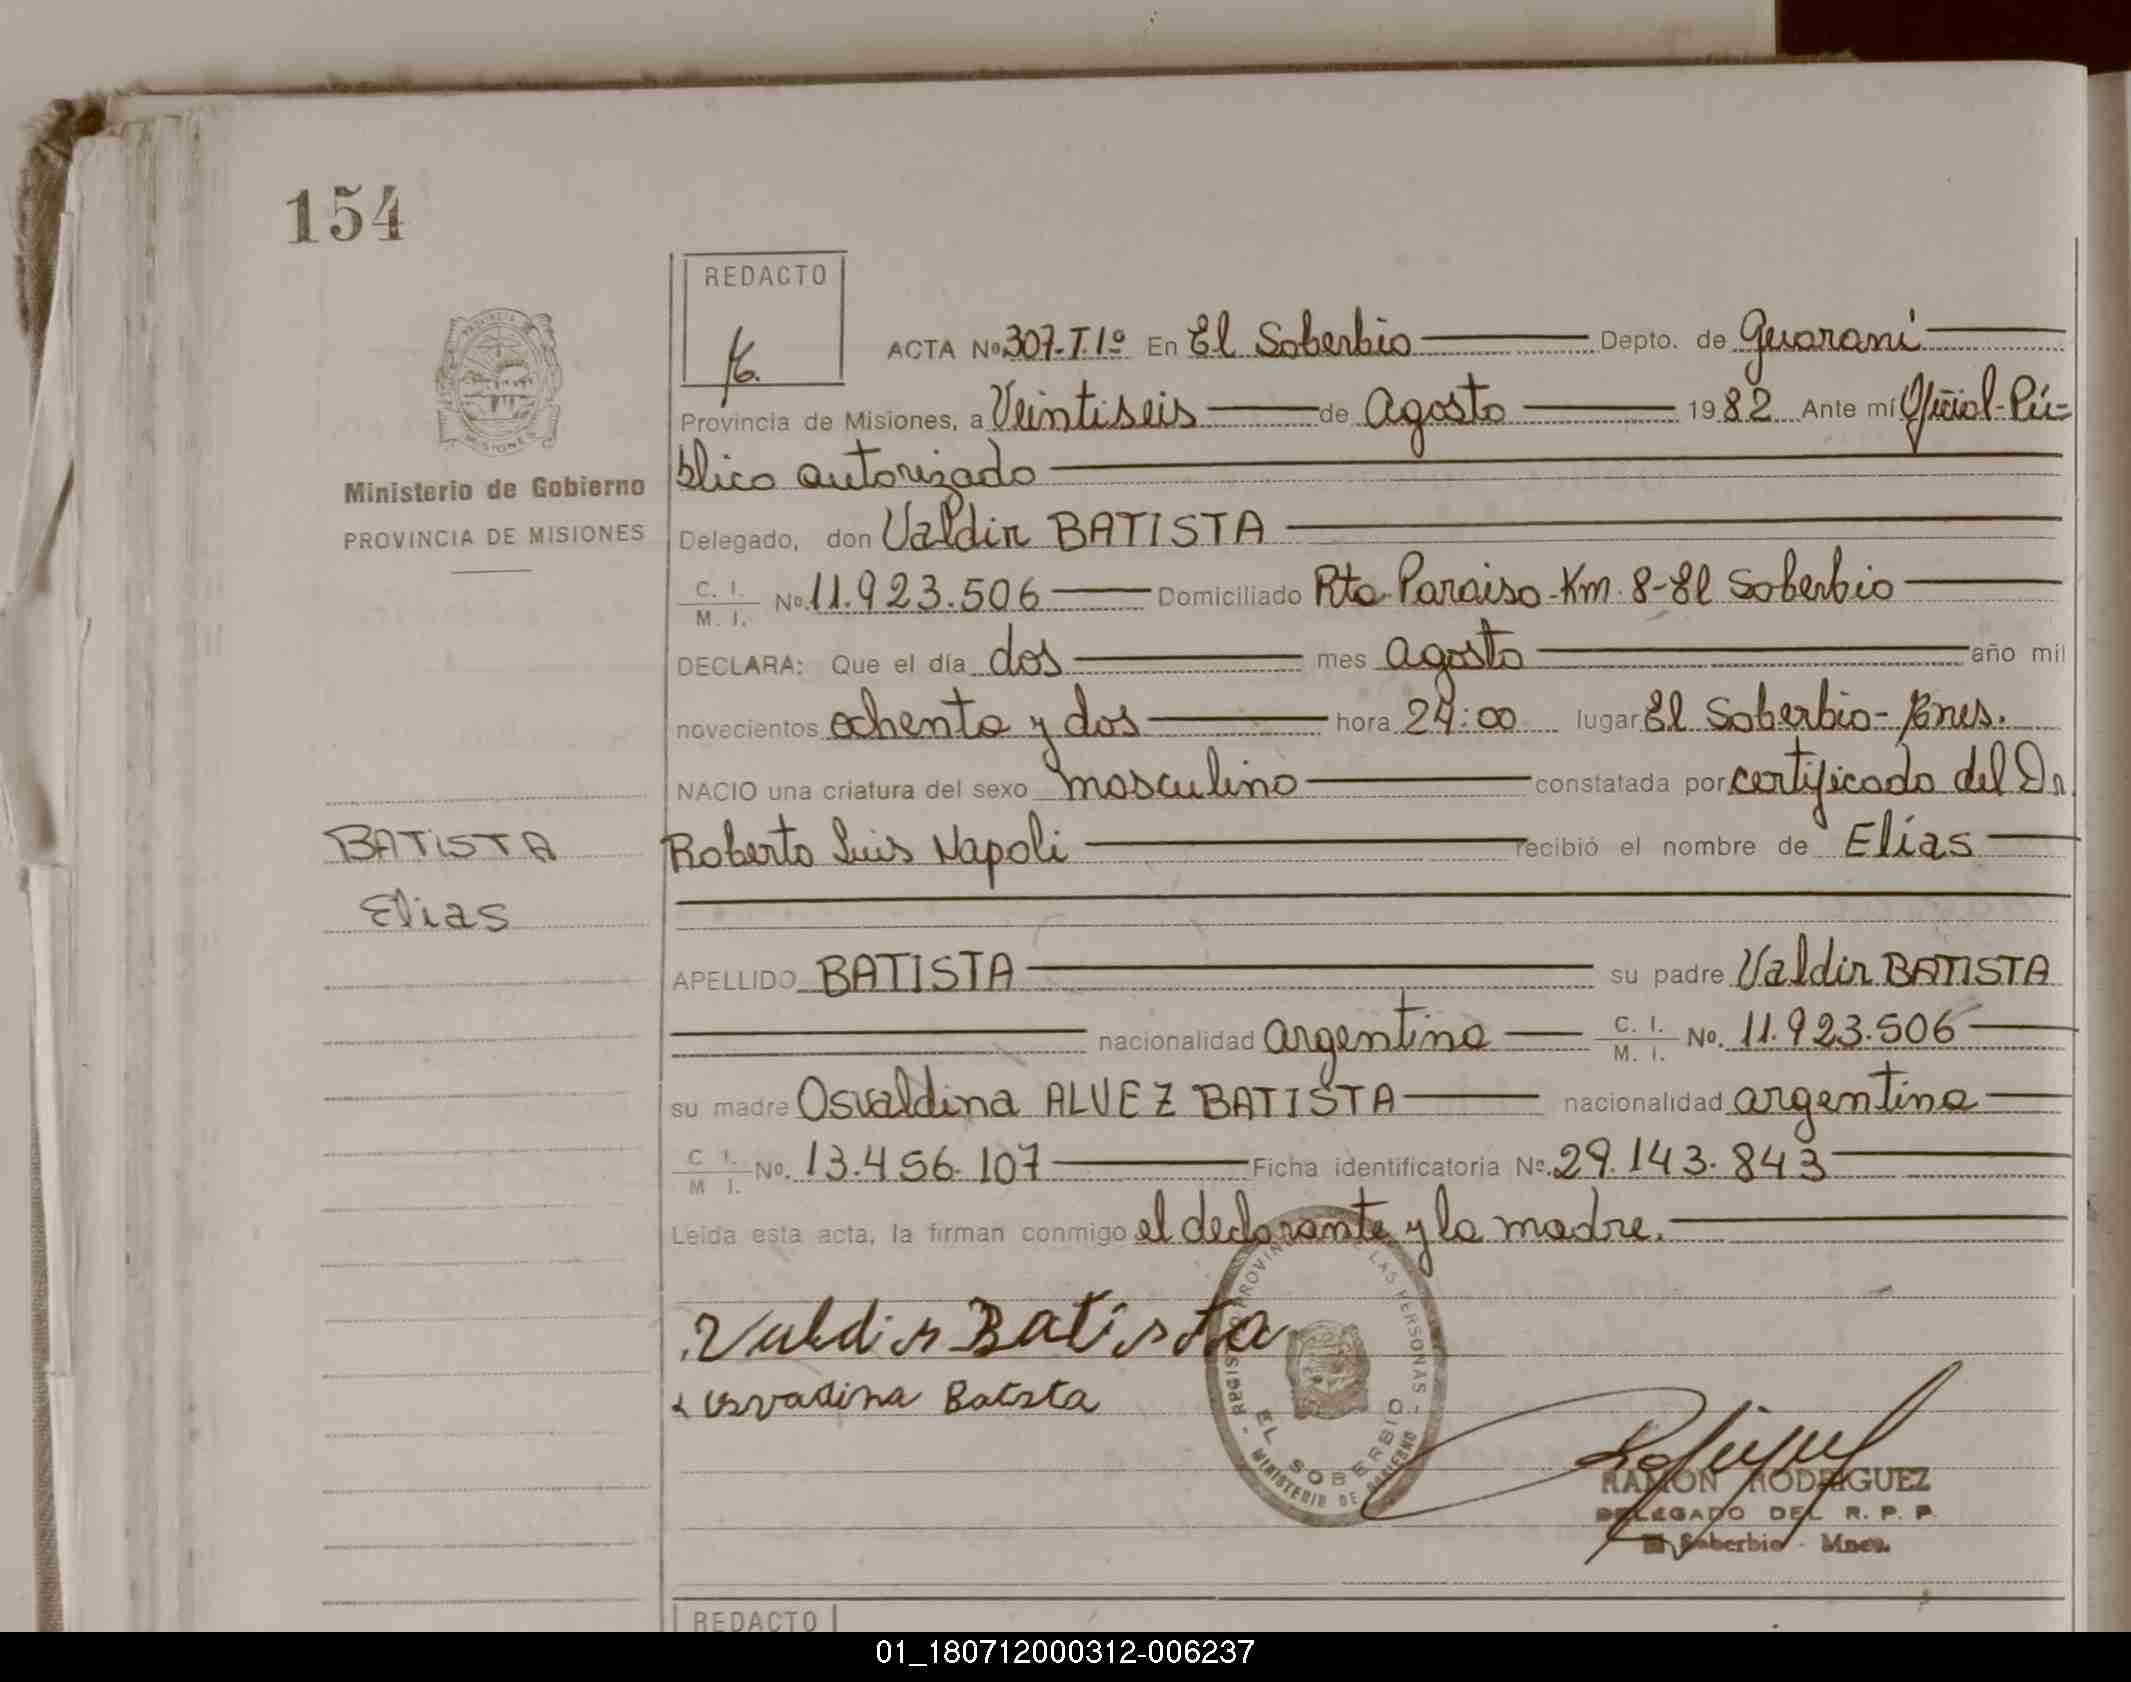 154
REDACTO
ACTA Nº 307-T.1º En El Soberbio Depto. de Guaraní
Provincia de Misiones, a Veintiseis de Agosto 1982 Ante mí Oficial-Pú-
blico autorizado
Ministerio de Gobierno
PROVINCIA DE MISIONES
Delegado, don Valdir BATISTA
C. I.
M. I. Nº 11.923.506 Domiciliado Rta. Paraiso-Km. 8-El Soberbio
DECLARA: Que el día dos mes agosto año mil
novecientos ochenta y dos hora 24:00 lugar El Soberbio-
NACIO una criatura del sexo masculino constatada por certificado del Dr.
BATISTA
Roberto Luis Napoli recibió el nombre de Elías
Elias
APELLIDO BATISTA su padre Valdir BATISTA
nacionalidad argentina C. I.
M. I. No. 11.923.506
su madre Osvaldina ALVEZ BATISTA nacionalidad argentina
C I.
M I. No. 13.456.107 Ficha identificatoria Nº 29.143.843
Leída esta acta, la firman conmigo el declarante y la madre.
Valdir Batista
Batista
LAS PERSONAS
EL SOBERBIO
MINISTERIO DE GOBIERNO
RAMON RODRIGUEZ
DELEGADO DEL R. P. P.
El Soberbio - Mnes.
REDACTO
01_180712000312-006237